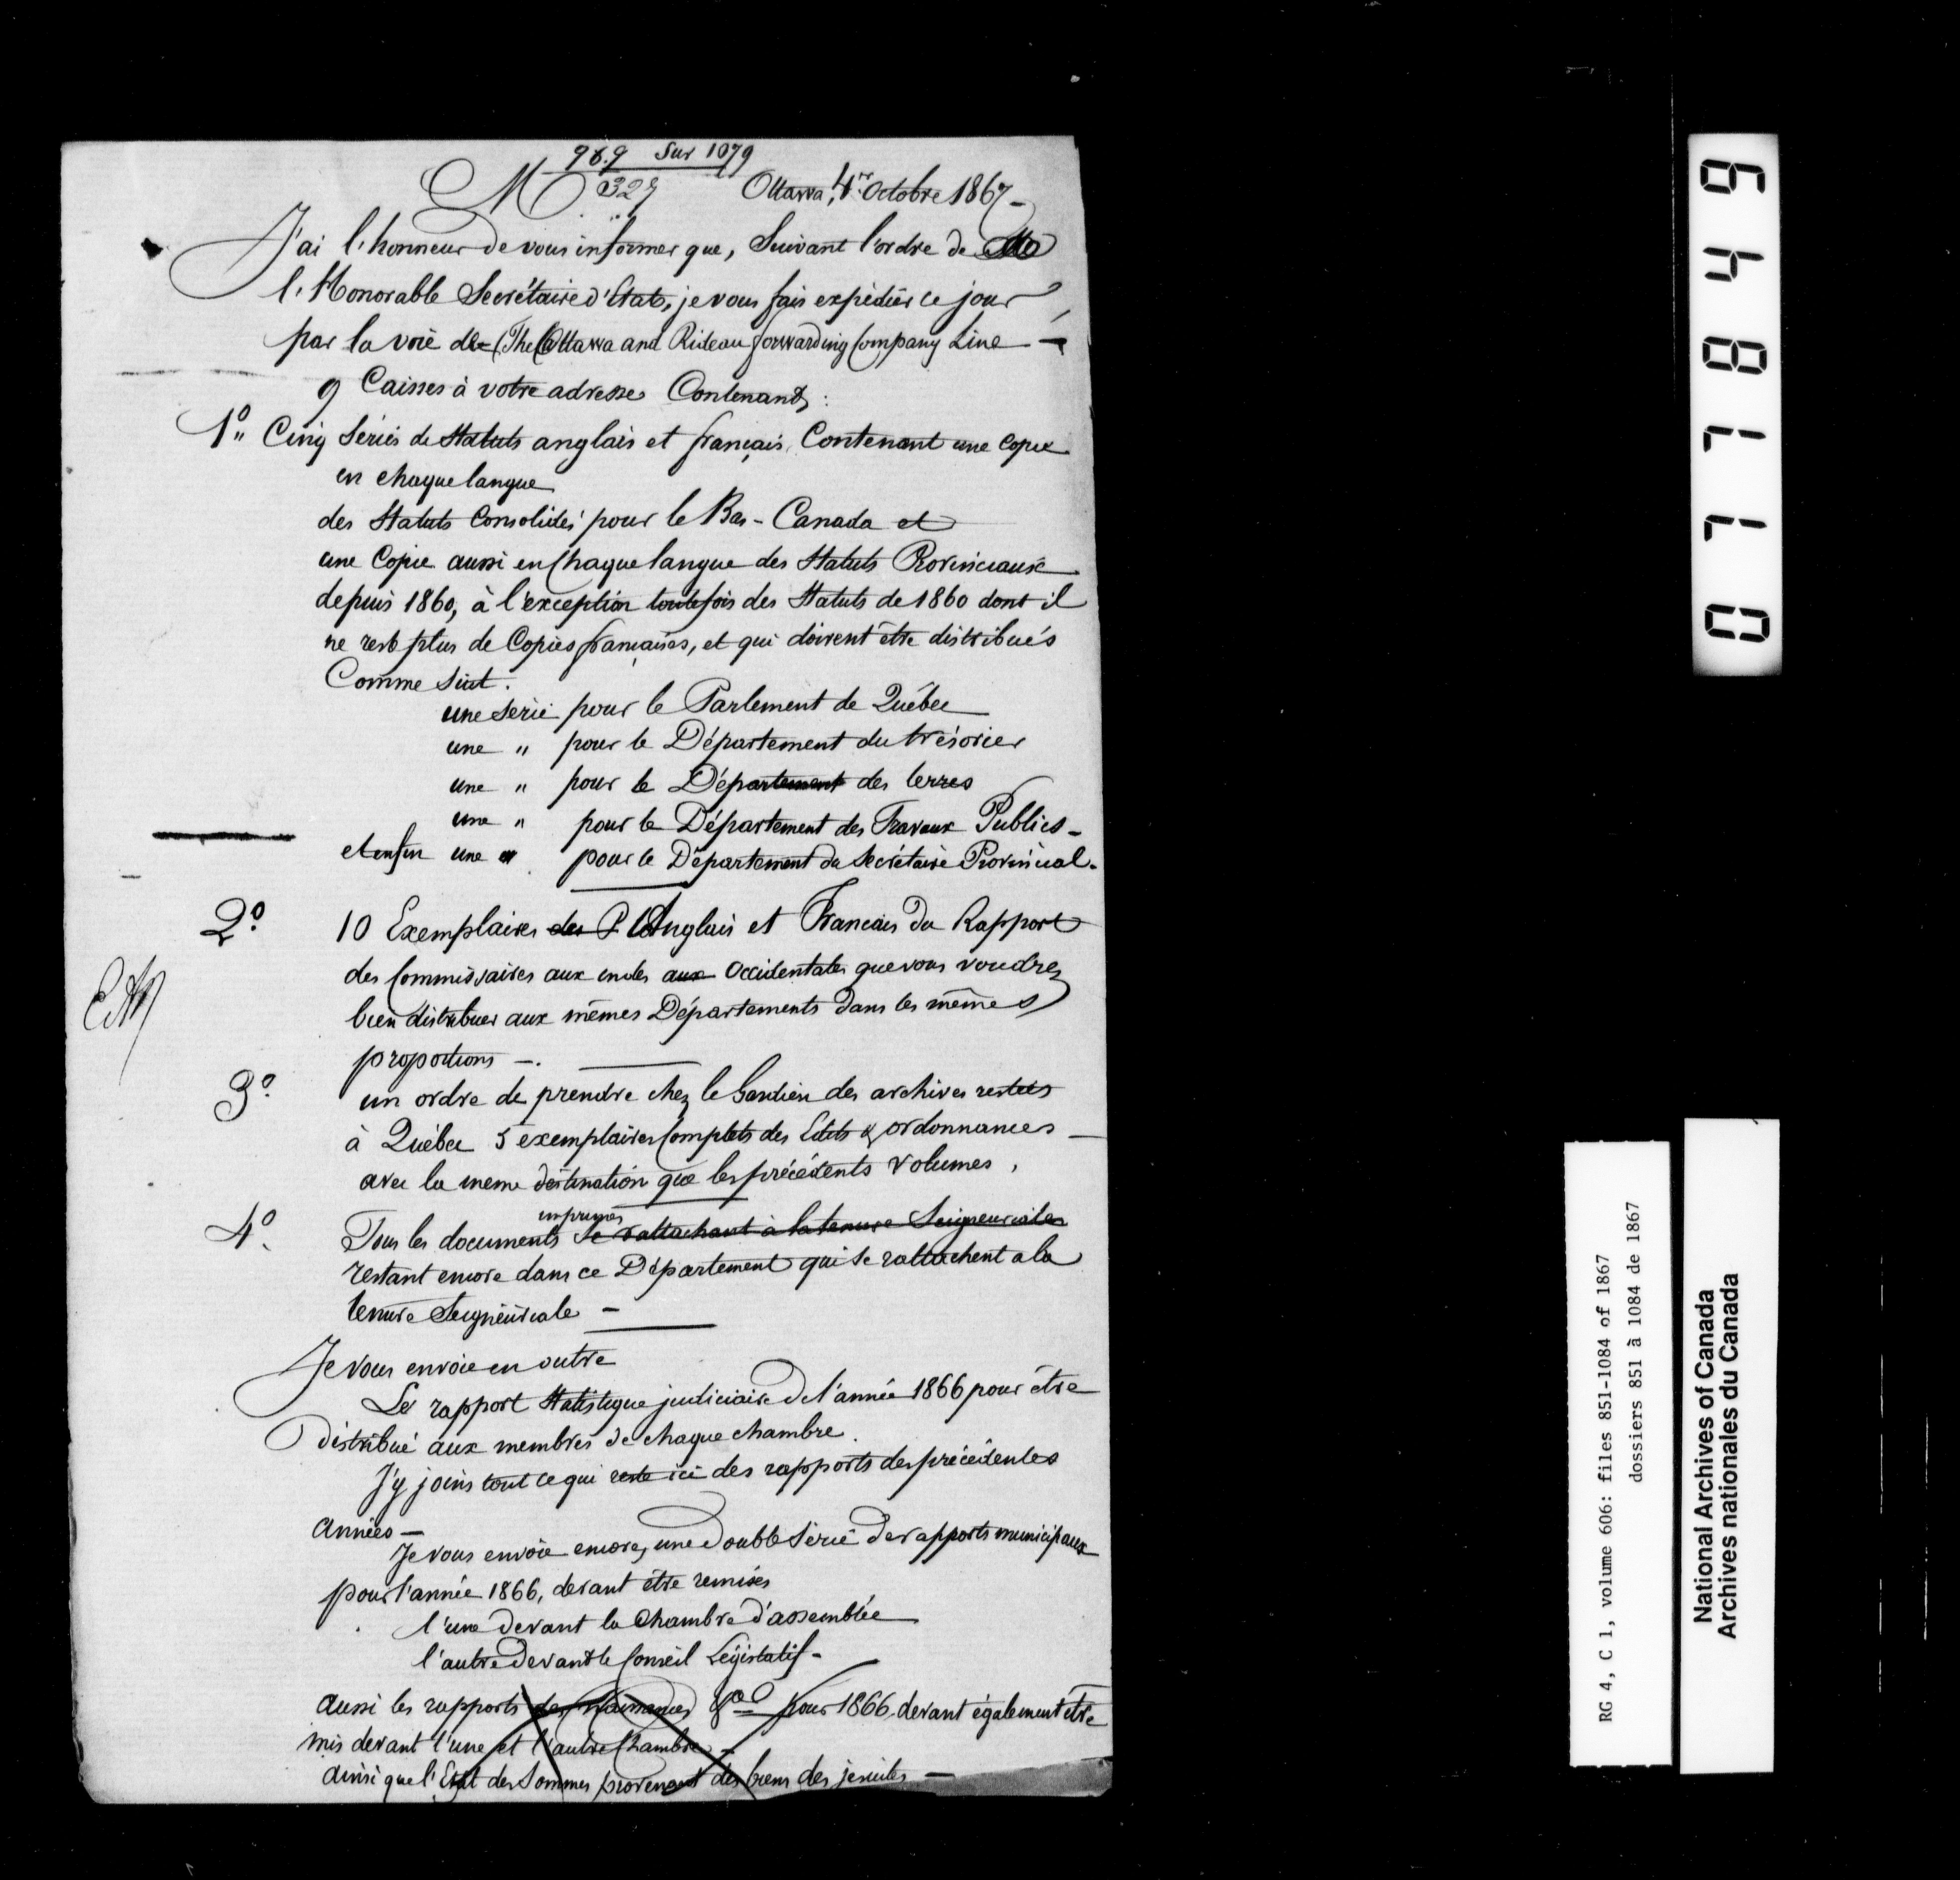 989 Sur 1079
M 327 Ottawa, 4 Octobre 1867 -
J'ai l'honneur de vous informer que, Suivant l'ordre de
l'Honorable Secrétaire d'Etat, je vous fais expédier ce jour
par la voie de (The Ottawa and Rideau forwarding Company Line -
9 Caisses à votre adresse Contenant :
1° Cinq Séries de Statuts anglais et français, Contenant une Copie
en chaque langue
des Statuts Consolidés pour le Bas-Canada et
une Copie aussi en Chaque langue des Statuts Provinciaux
depuis 1860, à l'exception toutefois des Statuts de 1860 dont il
ne reste plus de Copies françaises, et qui doivent être distribués
Comme suit.
une serie pour le Parlement de Québec
une " pour le Département du trésorier
une " pour le Département des terres
une " pour le Département des Travaux Publics -
et enfin une " pour le Département du Secrétaire Provincial -
2° 10 Exemplaires des P Anglais et Francais du Rapport
des Commissaires aux indes aux Occidentales que vous voudrez
bien distribuer aux mêmes Départements dans les mêmes
proportions -.
3° un ordre de prendre chez le Gardien des archives restées
à Québec 5 exemplaires Complets des Edits & ordonnances -
avec la meme destination que les précédents volumes.
imprimés
4° Tous les documents se rattachant à la tenure Seigneuriales
restant encore dans ce Département qui se rattachent a la
tenure Seigneuriale -
Je vous envoie en outre
Le rapport Statistique judiciaire de l'année 1866 pour être
distribué aux membres de chaque chambre.
J'y joins tout ce qui reste ici des rapports des précédentes
années -
Je vous envoie encore, une double Série de rapports municipaux
pour l'année 1866, devant être remises
l'une devant la Chambre d'assemblée
l'autre devant le Conseil Législatif -
aussi les rapports des naissances &a pour 1866, devant également être
mis devant l'une et l'autre Chambre -
ainsi que l'Etat des Sommes provenant des biens des jesuites -
077849
RG 4, C 1, volume 606: files 851-1084 of 1867
dossiers 851 à 1084 de 1867
National Archives of Canada
Archives nationales du Canada